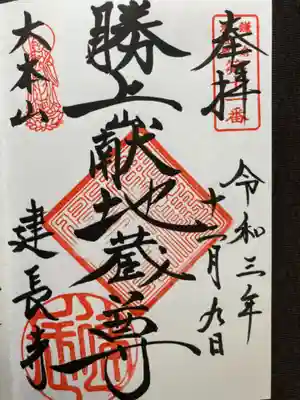 奉拝
令和三年
十一月九日
勝上献地蔵尊
大本山
建長寺